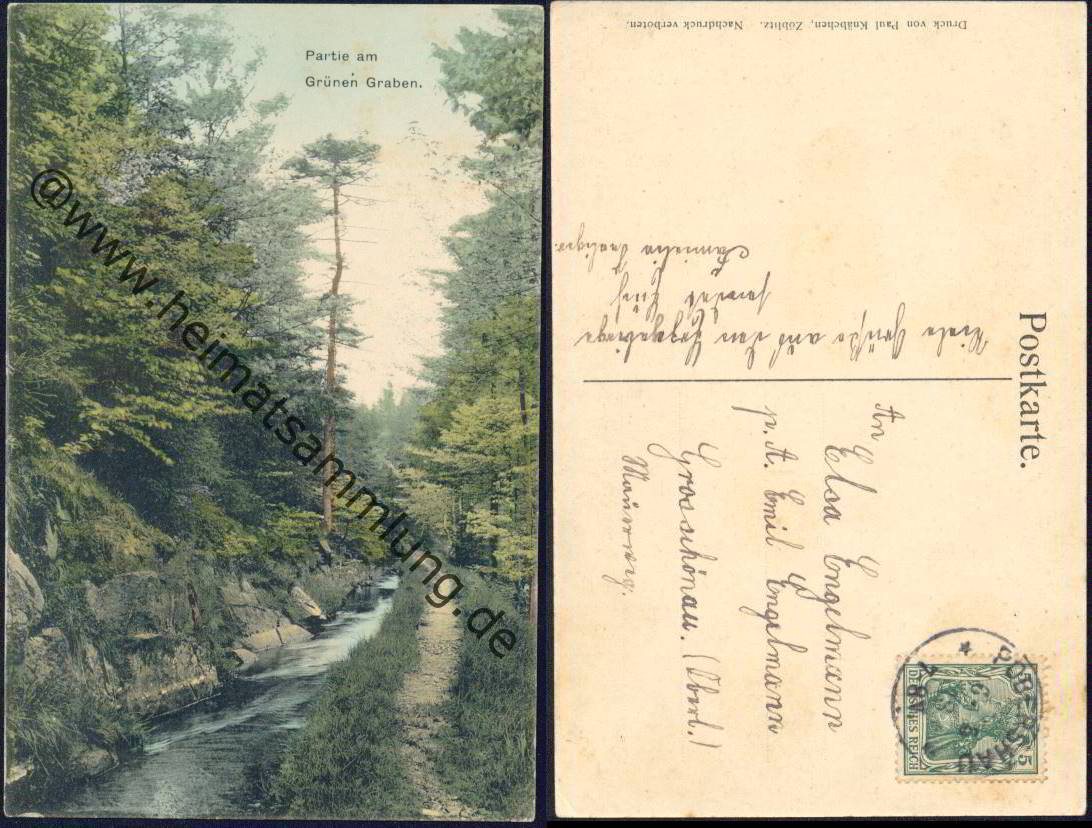 Partie am
Grünen Graben.
@www.heimatsammlung.de
Druck von Paul Knäbchen, Zöblitz. Nachdruck verboten.
Postkarte.
Viele Grüße aus den Erzgebirge
sendet Euch
Familie
An
Elsa Engelmann
p. A. Emil Engelmann
Grosschönau. (Oberl.)
Mauerweg.
POBERSHAU
DEUTSCHES REICH
5